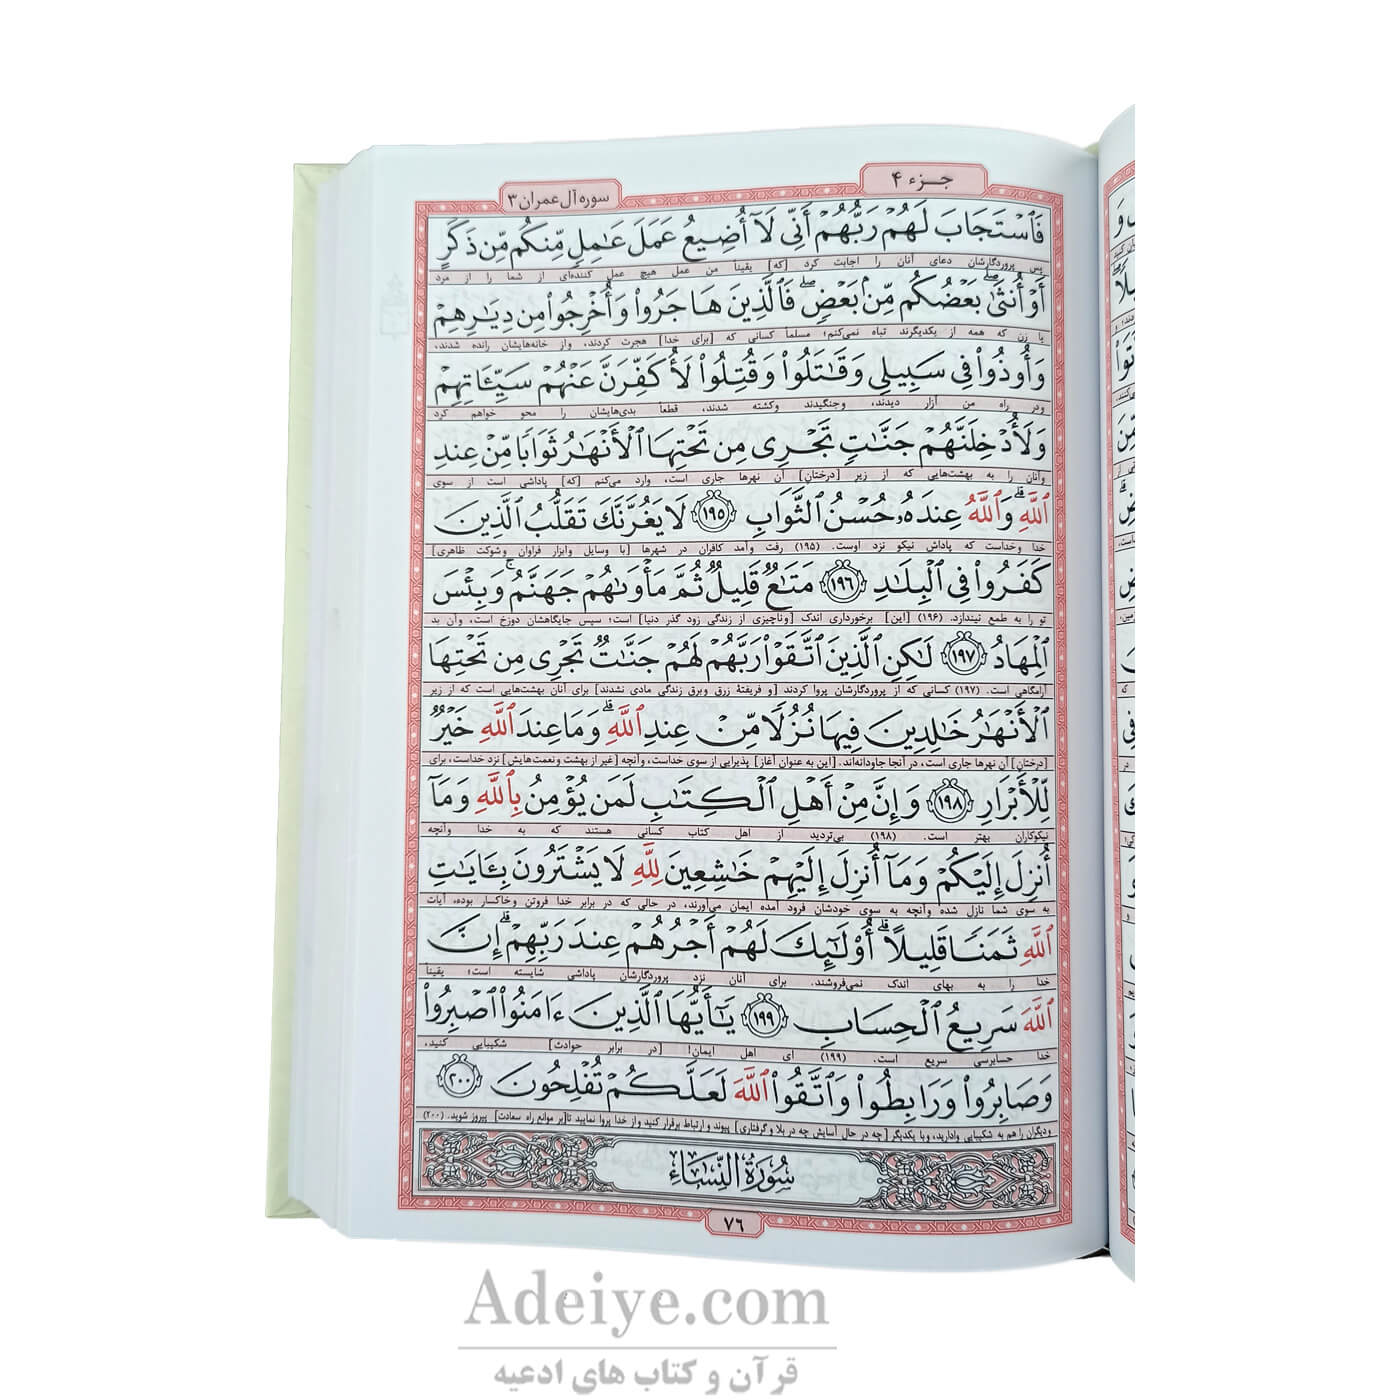 جزء ۴
سوره آل عمران ۳
فَٱسۡتَجَابَ لَهُمۡ رَبُّهُمۡ أَنِّي لَآ أُضِيعُ عَمَلَ عَٰمِلٖ مِّنكُم مِّن ذَكَرٍ
پس پروردگارشان دعای آنان را اجابت کرد [که] یقیناً من عمل هیچ عمل کننده‌ای از شما را از مرد
أَوۡ أُنثَىٰۖ بَعۡضُكُم مِّنۢ بَعۡضٖۖ فَٱلَّذِينَ هَاجَرُواْ وَأُخۡرِجُواْ مِن دِيَٰرِهِمۡ
یا زن که همه از یکدیگرند تباه نمی‌کنم؛ مسلماً کسانی که [برای خدا] هجرت کردند، واز خانه‌هایشان رانده شدند،
وَأُوذُواْ فِي سَبِيلِي وَقَٰتَلُواْ وَقُتِلُواْ لَأُكَفِّرَنَّ عَنۡهُمۡ سَيِّـَٔاتِهِمۡ
ودر راه من آزار دیدند، وجنگیدند وکشته شدند، قطعاً بدی‌هایشان را محو خواهم کرد
وَلَأُدۡخِلَنَّهُمۡ جَنَّٰتٖ تَجۡرِي مِن تَحۡتِهَا ٱلۡأَنۡهَٰرُ ثَوَابٗا مِّنۡ عِندِ
وآنان را به بهشت‌هایی که از زیر [درختانِ] آن نهرها جاری است، وارد می‌کنم [که] پاداشی است از سوی
ٱللَّهِۗ وَٱللَّهُ عِندَهُۥ حُسۡنُ ٱلثَّوَابِ ۱۹۵ لَا يَغُرَّنَّكَ تَقَلُّبُ ٱلَّذِينَ
خدا وخداست که پاداش نیکو نزد اوست. (۱۹۵) رفت وآمد کافران در شهرها [با وسایل وابزار فراوان وشوکت ظاهری]
كَفَرُواْ فِي ٱلۡبِلَٰدِ ۱۹۶ مَتَٰعٞ قَلِيلٞ ثُمَّ مَأۡوَىٰهُمۡ جَهَنَّمُۚ وَبِئۡسَ
تو را به طمع نیندازد. (۱۹۶) [این] برخورداری اندک [وناچیزی از زندگی زود گذر دنیا] است؛ سپس جایگاهشان دوزخ است، وآن بد
ٱلۡمِهَادُ ۱۹۷ لَٰكِنِ ٱلَّذِينَ ٱتَّقَوۡاْ رَبَّهُمۡ لَهُمۡ جَنَّٰتٞ تَجۡرِي مِن تَحۡتِهَا
آرامگاهی است. (۱۹۷) کسانی که از پروردگارشان پروا کردند [و فریفتهٔ زرق وبرق زندگی مادی نشدند] برای آنان بهشت‌هایی است که از زیر
ٱلۡأَنۡهَٰرُ خَٰلِدِينَ فِيهَا نُزُلٗا مِّنۡ عِندِ ٱللَّهِۗ وَمَا عِندَ ٱللَّهِ خَيۡرٞ
[درختانِ] آن نهرها جاری است، در آنجا جاودانه‌اند. [این به عنوان آغاز] پذیرایی از سوی خداست، وآنچه [غیر از بهشت ونعمت‌هایش] نزد خداست، برای
لِّلۡأَبۡرَارِ ۱۹۸ وَإِنَّ مِنۡ أَهۡلِ ٱلۡكِتَٰبِ لَمَن يُؤۡمِنُ بِٱللَّهِ وَمَآ
نیکوکاران بهتر است. (۱۹۸) بی‌تردید از اهل کتاب کسانی هستند که به خدا وآنچه
أُنزِلَ إِلَيۡكُمۡ وَمَآ أُنزِلَ إِلَيۡهِمۡ خَٰشِعِينَ لِلَّهِ لَا يَشۡتَرُونَ بِـَٔايَٰتِ
به سوی شما نازل شده وآنچه به سوی خودشان فرود آمده ایمان می‌آورند، در حالی که در برابر خدا فروتن وخاکسار بوده، آیات
ٱللَّهِ ثَمَنٗا قَلِيلًاۗ أُوْلَٰٓئِكَ لَهُمۡ أَجۡرُهُمۡ عِندَ رَبِّهِمۡۗ إِنَّ
خدا را به بهای اندک نمی‌فروشند. برای آنان نزد پروردگارشان پاداشی شایسته است؛ یقیناً
ٱللَّهَ سَرِيعُ ٱلۡحِسَابِ ۱۹۹ يَٰٓأَيُّهَا ٱلَّذِينَ ءَامَنُواْ ٱصۡبِرُواْ
خدا حسابرسی سریع است. (۱۹۹) ای اهل ایمان! [در برابر حوادث] شکیبایی کنید،
وَصَابِرُواْ وَرَابِطُواْ وَٱتَّقُواْ ٱللَّهَ لَعَلَّكُمۡ تُفۡلِحُونَ ۲۰۰
ودیگران را هم به شکیبایی وادارید، وبا یکدیگر [چه در حال آسایش چه در بلا و گرفتاری] پیوند و ارتباط برقرار کنید و از خدا پروا نمایید تا [بر موانع راه سعادت] پیروز شوید. (۲۰۰)
سُورَةُ ٱلنِّسَاءِ
۷۶
Adeiye.com
قرآن و کتاب های ادعیه